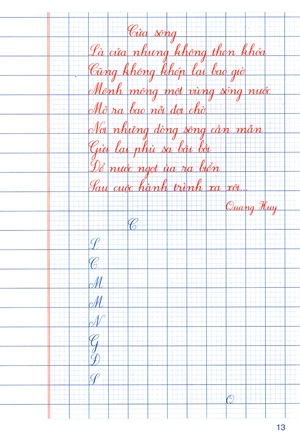 Cửa sông
Là cửa nhưng không then khóa
Cũng không khép lại bao giờ
Mênh mông một vùng sóng nước
Mở ra bao nỗi đợi chờ
Nơi những dòng sông cần mẫn
Gửi lại phù sa bãi bồi
Để nước ngọt ùa ra biển
Sau cuộc hành trình xa xôi...
Quang Huy
C
L
C
M
M
N
G
Đ
S
Q
13